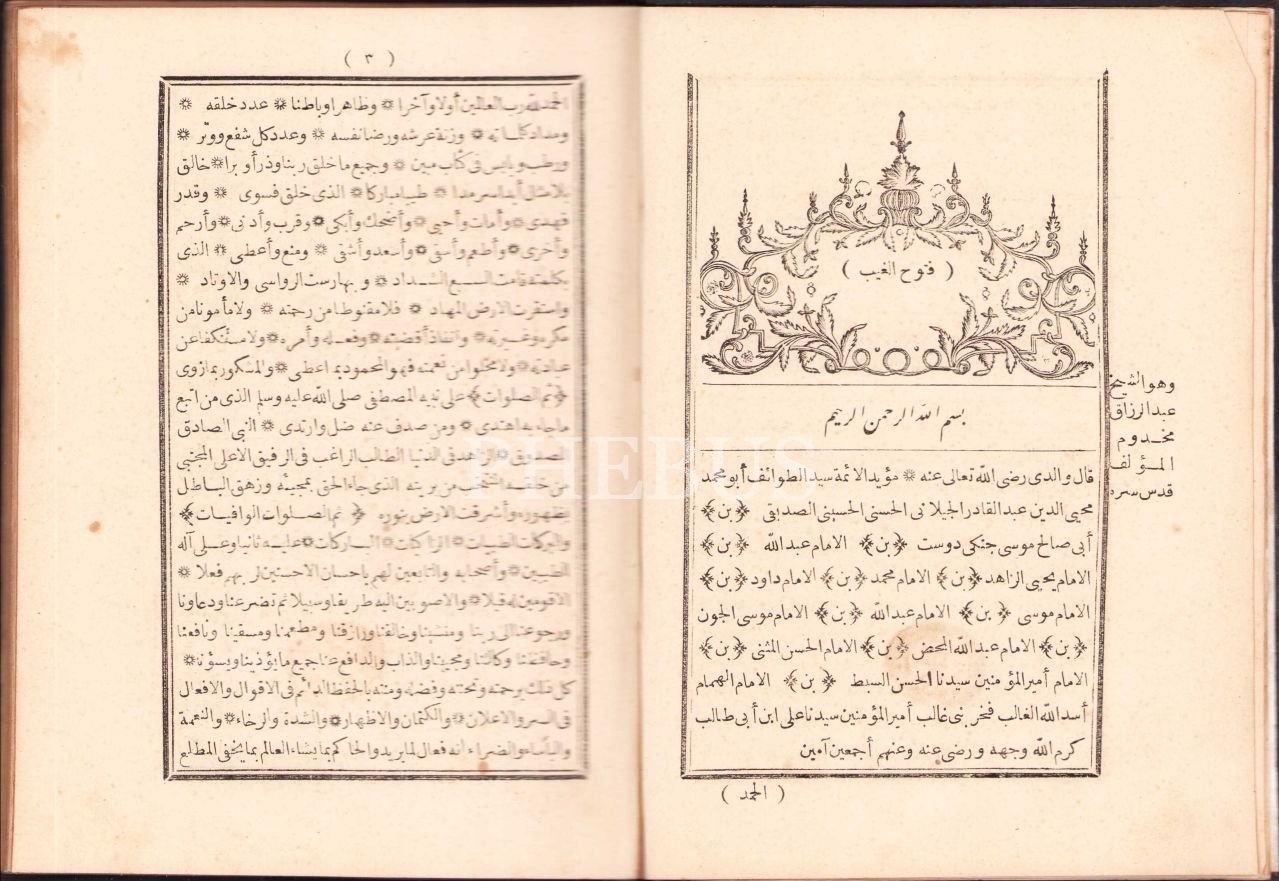 ( فتوح الغيب )
بسم الله الرحمن الرحيم
قال والدى رضى الله تعالى عنه * مؤيد الائمة سيد الطوائف أبو محمد
محيى الدين عبد القادر الجيلانى الحسنى الحسينى الصديقى ﴿ بن ﴾
أبى صالح موسى جنكى دوست ﴿ بن ﴾ الامام عبد الله ﴿ بن ﴾
الامام يحيى الزاهد ﴿ بن ﴾ الامام محمد ﴿ بن ﴾ الامام داود ﴿ بن ﴾
الامام موسى ﴿ بن ﴾ الامام عبد الله ﴿ بن ﴾ الامام موسى الجون
﴿ بن ﴾ الامام عبد الله المحض ﴿ بن ﴾ الامام الحسن المثنى ﴿ بن ﴾
الامام أمير المؤمنين سيدنا الحسن السبط ﴿ بن ﴾ الامام الهمام
أسد الله الغالب فخر بنى غالب أمير المؤمنين سيدنا على ابن أبى طالب
كرم الله وجهه ورضى عنه وعنهم أجمعين آمين
( الحمد )
وهو الشيخ
عبد الرزاق
مخدوم
المؤلف
قدس سره
( ٣ )
الحمد لله رب العالمين أولا وآخرا * وظاهرا وباطنا * عدد خلقه *
ومداد كلماته * وزنة عرشه ورضا نفسه * وعدد كل شفع ووتر *
ورطب ويابس فى كتاب مبين * وجميع ما خلق ربنا وذرأ وبرا * خالق
بلا مثال أبدا سرمدا * طيبا مباركا * الذى خلق فسوى * وقدر
فهدى * وأمات وأحيى * وأضحك وأبكى * وقرب وأدنى * وأرحم
وأخزى * وأطعم وأسقى * وأسعد وأشقى * ومنع وأعطى * الذى
بكلمته قامت السبع الشداد * وبها رست الرواسى والاوتاد *
واستقرت الارض المهاد * فلا مقنوطا من رحمته * ولا مأمونا من
مكره وغيرته * وانفاذ أقضيته * وفعله وأمره * ولا مستنكفا عن
عبادته * ولا مخلوا من نعمته فهو المحمود بما اعطى * والمشكور بما زوى
﴿ ثم الصلوات ﴾ على نبيه المصطفى صلى الله عليه وسلم الذى من اتبع
ما جاء به اهتدى * ومن صدف عنه ضل وارتدى * النبى الصادق
المصدوق * الزاهد فى الدنيا الطالب الراغب فى الرفيق الاعلى المجتبى
من خلقه المنتخب من بريته الذى جاء الحق بمجيئه وزهق الباطل
بظهوره وأشرقت الارض بنوره ﴿ ثم الصلوات الوافيات ﴾
والبركات الطيبات * الزاكيات * المباركات * عليه ثانيا وعلى آله
الطيبين * وأصحابه والتابعين لهم باحسان الاحسنين لربهم فعلا *
الاقومين له قيلا * والاصوبين اليه طريقا وسبيلا ثم تضرعنا ودعاونا
ورجوعنا الى ربنا ومنشينا وخالقنا ورازقنا ومطعمنا ومسقينا ونافعنا
وحافظنا وكالئنا ومحيينا والذاب والدافع عنا جميع ما يؤذينا ويسؤنا *
كل ذلك برحمته وتحننه وفضله ومنته بالحفظ الدائم فى الاقوال والافعال
فى السر والاعلان * والكتمان والاظهار * والشدة والرخاء * والنعمة
والبأساء والضراء انه فعال لما يريد والحاكم بما يشاء العالم بما يخفى المطلع
PHEBUS